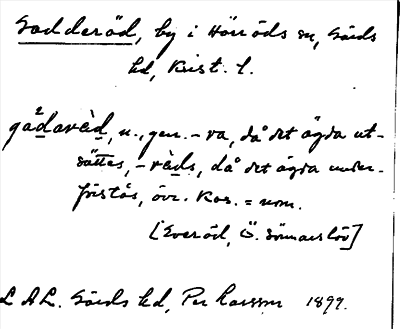 Sadderöd, by i Hörröds sn, Gärds
hd, Krist. l.
gådaröd, n., gen. -ra, då det ägda ut-
sättes, -röds, då det ägda under-
förstås, övr. kas. = nom.
[Everöd, Ö. Sönnarslöv]
L A L. Gärds hd, Per Larsson 1899.